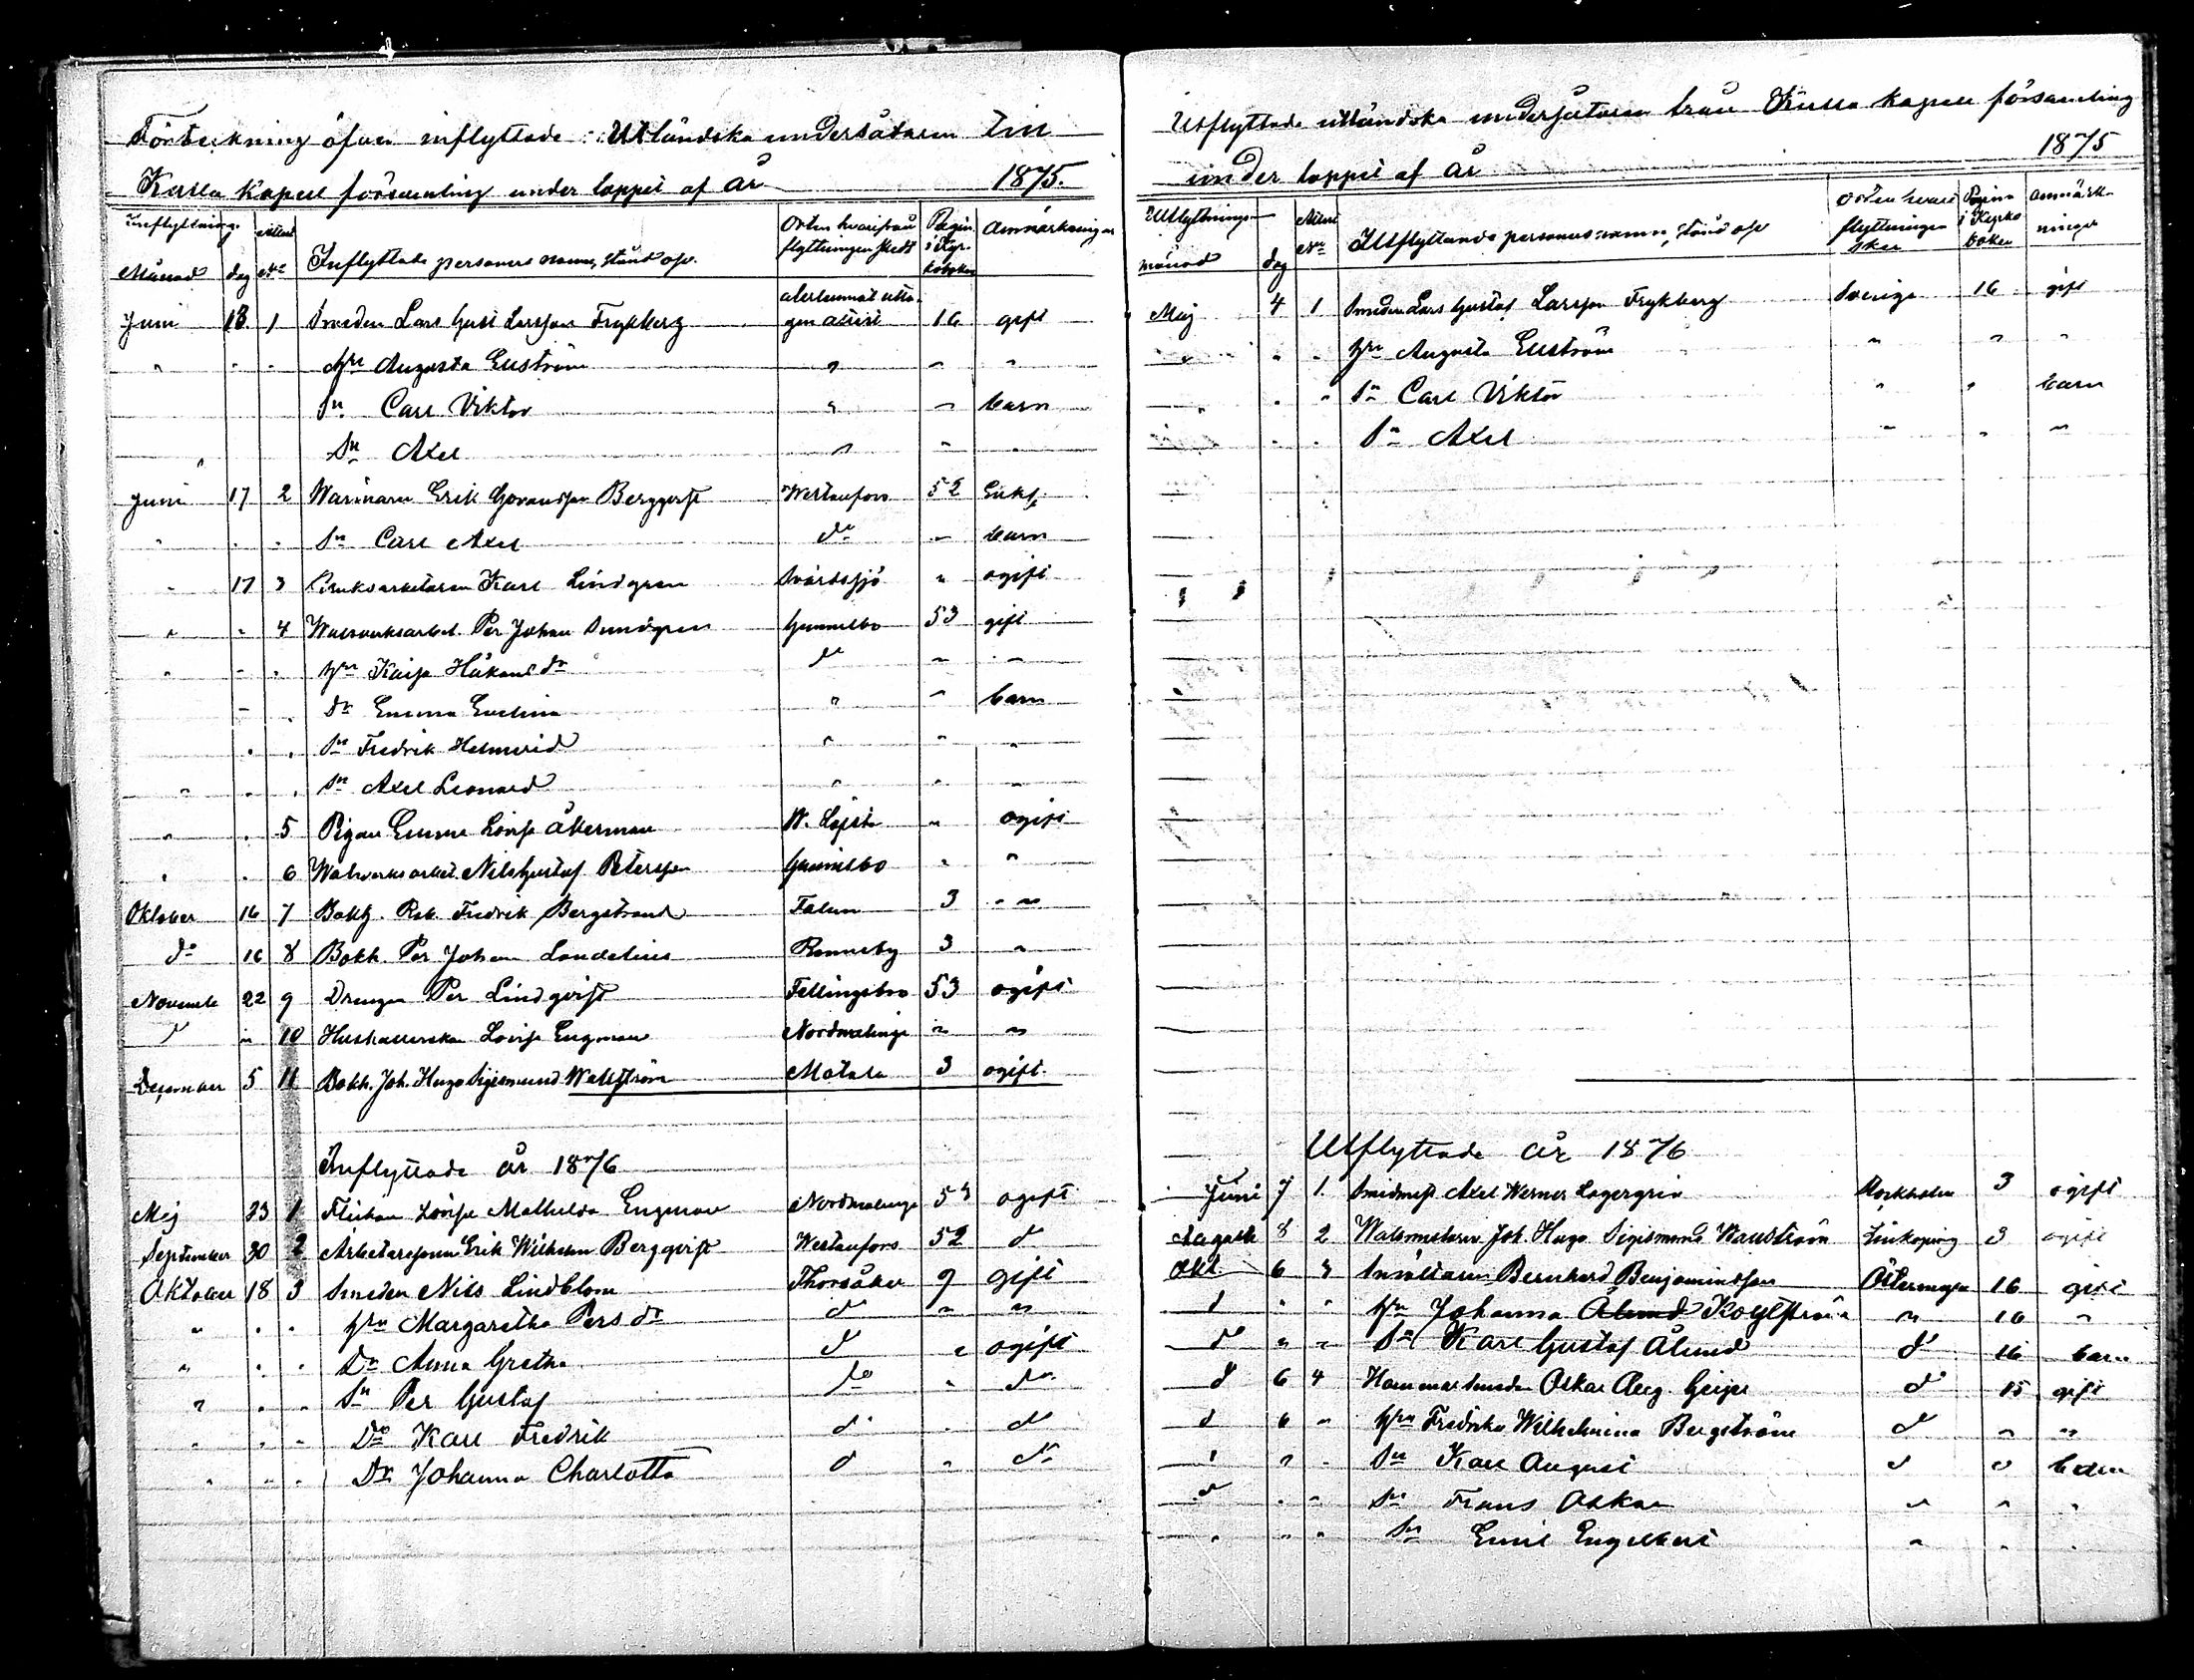 Förteckning öfver inflyttade Utländska undersåtare till
Kulla Kapell församling under loppet af År 1875.
Inflyttning Attest Orten hvarifrån Pagin. Anmärkningar
Månad dag No Inflyttade personers namn, stånd osv. flyttningen skedt i Kyr. boken
återlemnat utta-
Juni 13 1 Smeden Lars Gust Larsson Frykberg gen attest 16 gift
" " " Hru Augusta Enström " " "
Sn Carl Viktor " " barn
" Sn Axel " " "
Juni 17 2 Erik Göransson Bergqvist Westanfors 52 Enkl.
" " " Sn Carl Axel do " barn
" 17 3 Bruksarbetaren Karl Lindgren Svärdsjö " ogift
" " 4 Walsverksarbet. Per Johan Sundgren Gunnilbo 53 gift
" " " Hru Kaisa Håkans dr d " "
" " Dr Emma Evelina " " barn
" " Sn Fredrik Helmerid " " "
" " " Sn Axel Leonard " " "
" " 5 Pigan Emma Lovisa Åkerman W. Löfsta " ogift
" " 6 Walsverksarbet. Nils Gustaf Petersson Gunnilbo " "
Oktober 16 7 Bokh. Rob. Fredrik Bergstrand Falun 3 " "
do 16 8 Bokh. Per Johan Landelius Ronneby 3 "
Novemb 22 9 Drengen Per Lindqvist Fellingsbro 53 ogift
d " 10 Hushållerskan Lovisa Engman Nordmalings " "
December 5 11 Bokh. Joh. Hugo Sigismund Wallström Motala 3 ogift.
Inflyttade år 1876
Maj 23 1 Flickan Lovisa Mathilda Engman Nordmalings 53 ogift
September 30 2 Arbetaresonen Erik Wilhelm Bergqvist Westanfors 52 d
Oktober 18 3 Smeden Nils Lindblom Thorsåker 9 gift
" " " Hru Margaretha Pers dr d " "
" " " Dr Anna Gretha d " ogift
" " " Sn Per Gustaf do " do
" " " Do Karl Fredrik d " d
" " " Dr Johanna Charlotta d " d
Utflyttade utländska undersåtare från Kulla kapell församling
under loppet af år 1875
Utflyttnings Attest orten hvart Pagina Anmärk-
månad dag No Utflyttande personers namn, stånd osv flyttningen sker i Kyrko boken ningar
Maj 4 1 Smeden Lars Gustaf Larsson Frykberg Sverige 16 gift
" " " Hru Augusta Enström " " "
" " " Sn Carl Viktor " " barn
" " Sn Axel " " "
Utflyttade år 1876
Juni 7 1. Smidmest Axel Werner Lagergrén Stockholm 3 ogift
Augusti 8 2 Joh. Hugo Sigismund Wallström Linköping 3 ogift
Okt. 6 3 Bernhard Benjaminsson Östermyra 16 gift
d " " Hru Johanna Ålund Koylström " 16 "
d " " Sn Karl Gustaf Ålund d 16 barn
d 6 4 Hammarsmeden Oskar Aug. Geijer d 15 gift
d 6 " Hru Fredrika Wilhelmina Bergström d " "
" " " Sn Karl August " " barn
d " " Sn Frans Oskar " " "
" " " Sn Emil Engelbert " " "